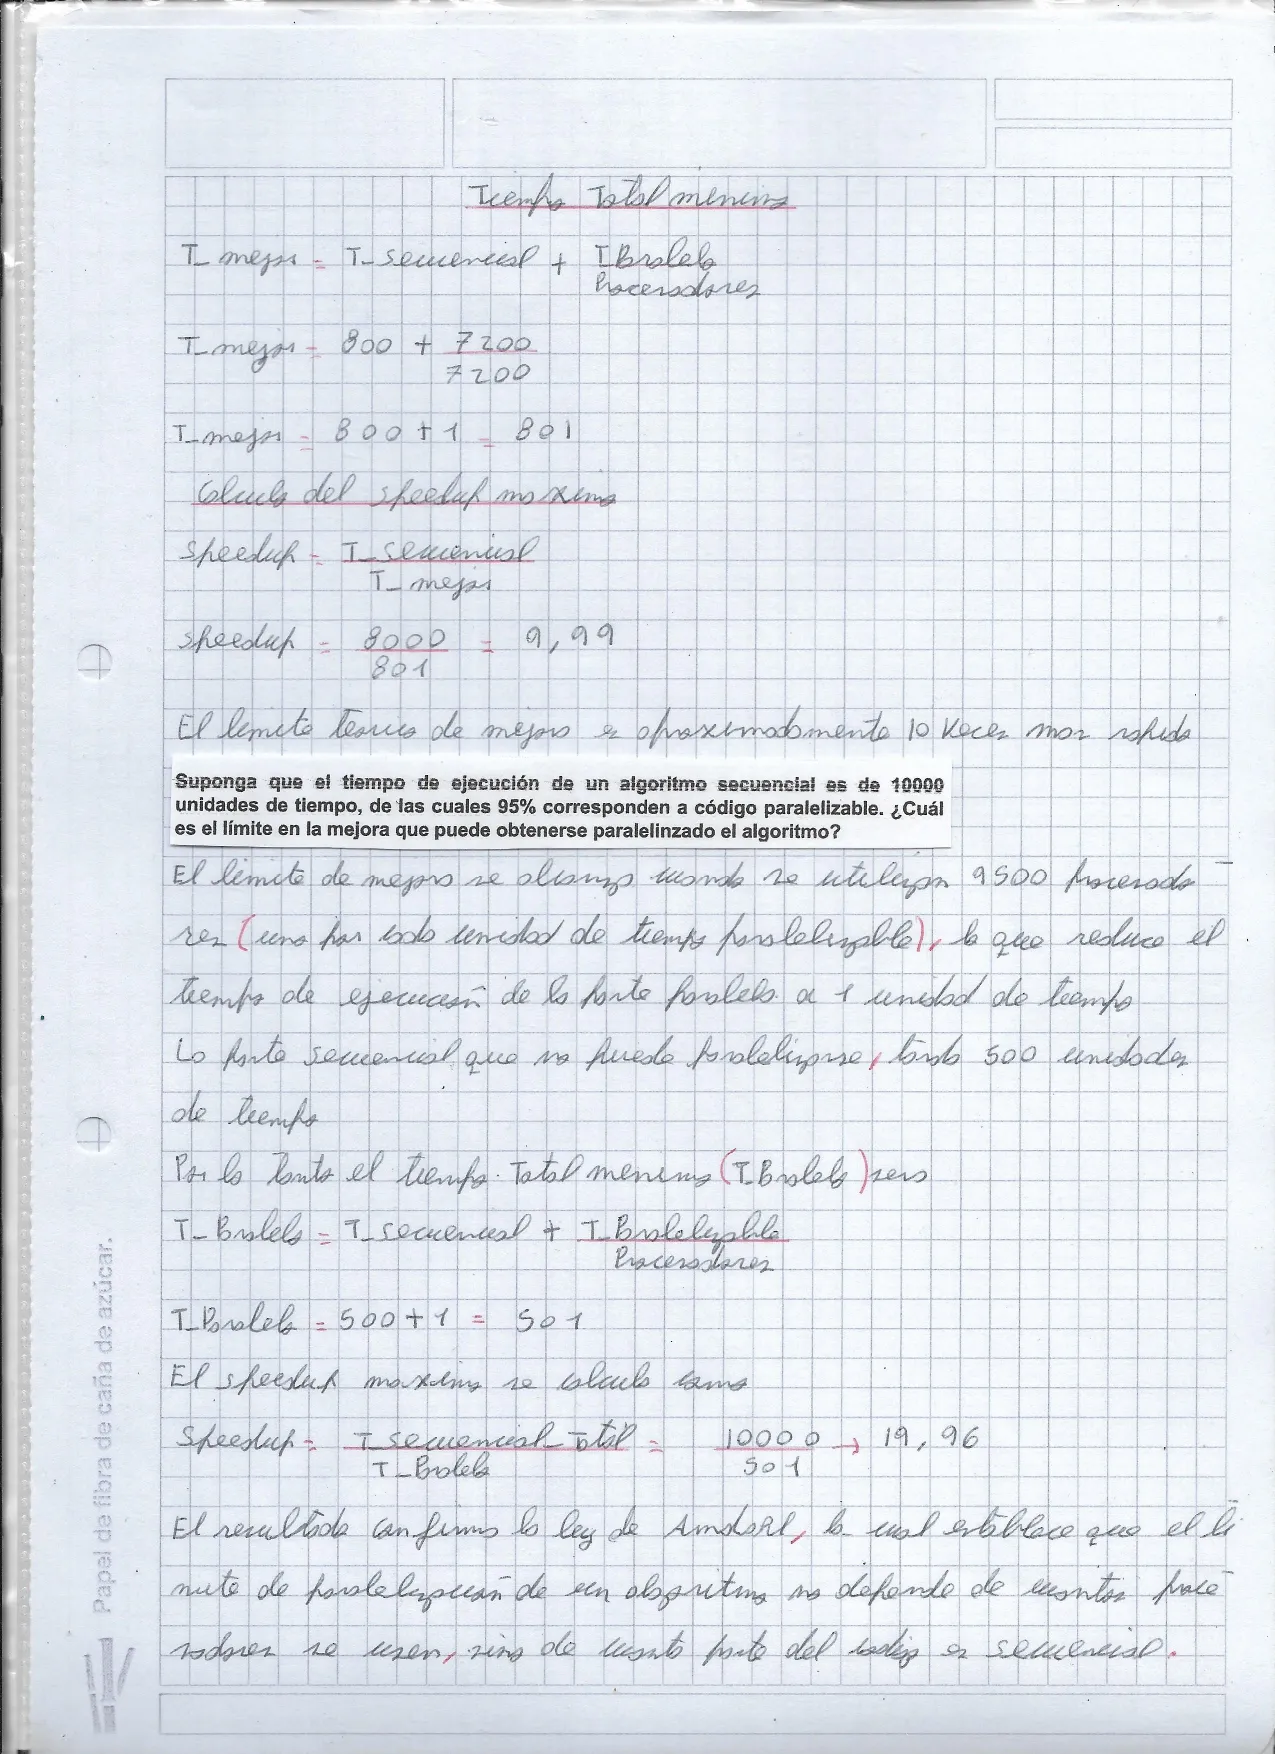 Tiempo Total minimo
T_ mejor = T_ secuencial + T. Paralelo
Procesadores
T_ mejor = 800 + 7200
7200
T_ mejor = 800 + 1 = 801
Calculo del speedup maximo
Speedup = T_ secuencial
T_ mejor
speedup = 8000 = 9,99
801
El limite teorico de mejora es aproximadamente 10 veces mas rapido
Suponga que el tiempo de ejecución de un algoritmo secuencial es de 10000
unidades de tiempo, de las cuales 95% corresponden a código paralelizable. ¿Cuál
es el límite en la mejora que puede obtenerse paralelinzado el algoritmo?
El limite de mejora se alcanza cuando se utilizan 9500 procesado
res (uno por cada unidad de tiempo paralelizable), lo que reduce el
tiempo de ejecución de la parte paralela a 1 unidad de tiempo
La parte secuencial que no puede paralelizarse, tarda 500 unidades
de tiempo
Por lo tanto el tiempo Total minimo (T. Paralelo) sera
T_ Paralelo = T_ secuencial + T. Paralelizable
Procesadores
T_ Paralelo = 500 + 1 = 501
El speedup maximo se calcula como
Speedup = T secuencial Total = 10000 → 19,96
T_ Paralelo 501
El resultado confirma la ley de Amdahl, la cual establece que el li
mite de paralelización de un algoritmo no depende de cuantos proce
sadores se usen, sino de cuanta parte del codigo es secuencial.
Papel de fibra de caña de azúcar.